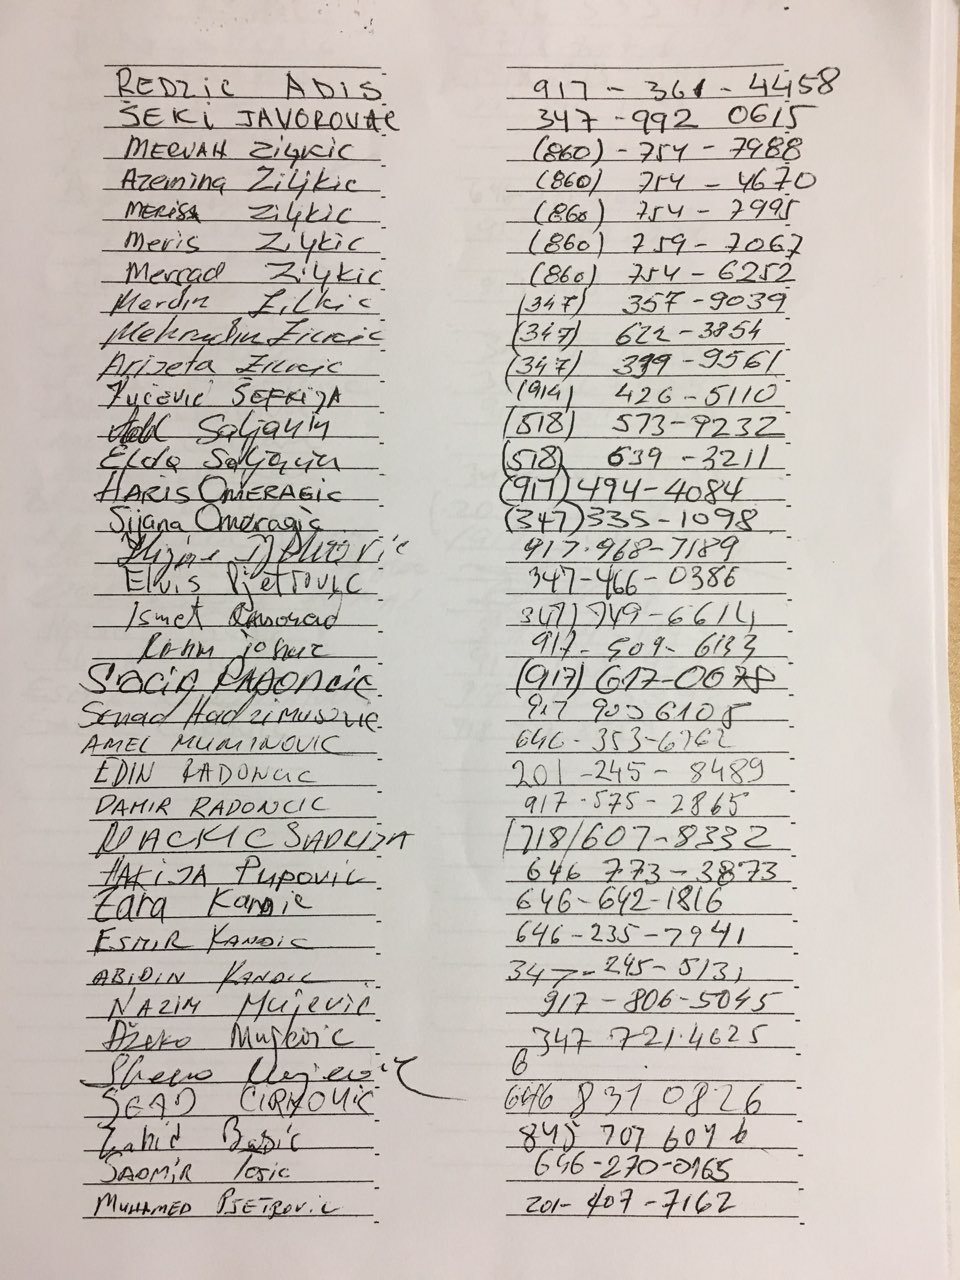 REDZIC ADIS 917 - 361 - 4458
ŠEKI JAVOROVAC 347 - 992 0615
MERVAH Ziljkic (860) - 754 - 7988
Azemina Ziljkic (860) 754 - 4670
MERISA Ziljkic (860) 754 - 7995
Meris Ziljkic (860) 759 - 7067
Mersad Ziljkic (860) 754 - 6252
Merdin Zilkic (347) 357 - 9039
(347) 622 - 3854
Arizeta (347) 399 - 9561
ŠEFKIJA (914) 426 - 5110
Saljanin (518) 573 - 9232
Elda Saljanin (518) 639 - 3211
HARIS OMERAGIC (917) 494 - 4084
Sijana Omeragic (347) 335 - 1098
917·968 - 7189
Elvis Pjetrovic 347 - 466 - 0386
Ismet 347) 749 - 6614
917 - 509 - 6133
(917) 617 - 0678
Senad Hadzimusovic 917
AMEL MUMINOVIC 646 - 353 - 6762
EDIN RADONCIC 201 - 245 - 8489
DAMIR RADONCIC 917 - 575 - 2865
MACKIC SADIJA 718/607 - 8332
HAKIJA Pupovic 646 773 - 3873
Zara Kandic 646 - 642 - 1816
ESMIR KANDIC 646 - 235 - 7941
ABIDIN KANDIC 347 - 245 - 5131
NAZIM Mujevic 917 - 806 - 5045
Džeko Mujkovic 347 721·4625
6
SEAD CIRKOVIC 646 831 0826
Zahid Basic 845 707
SADMIR Tosic 646 - 270 - 0165
MUHAMED PJETROVIC 201 - 407 - 7162